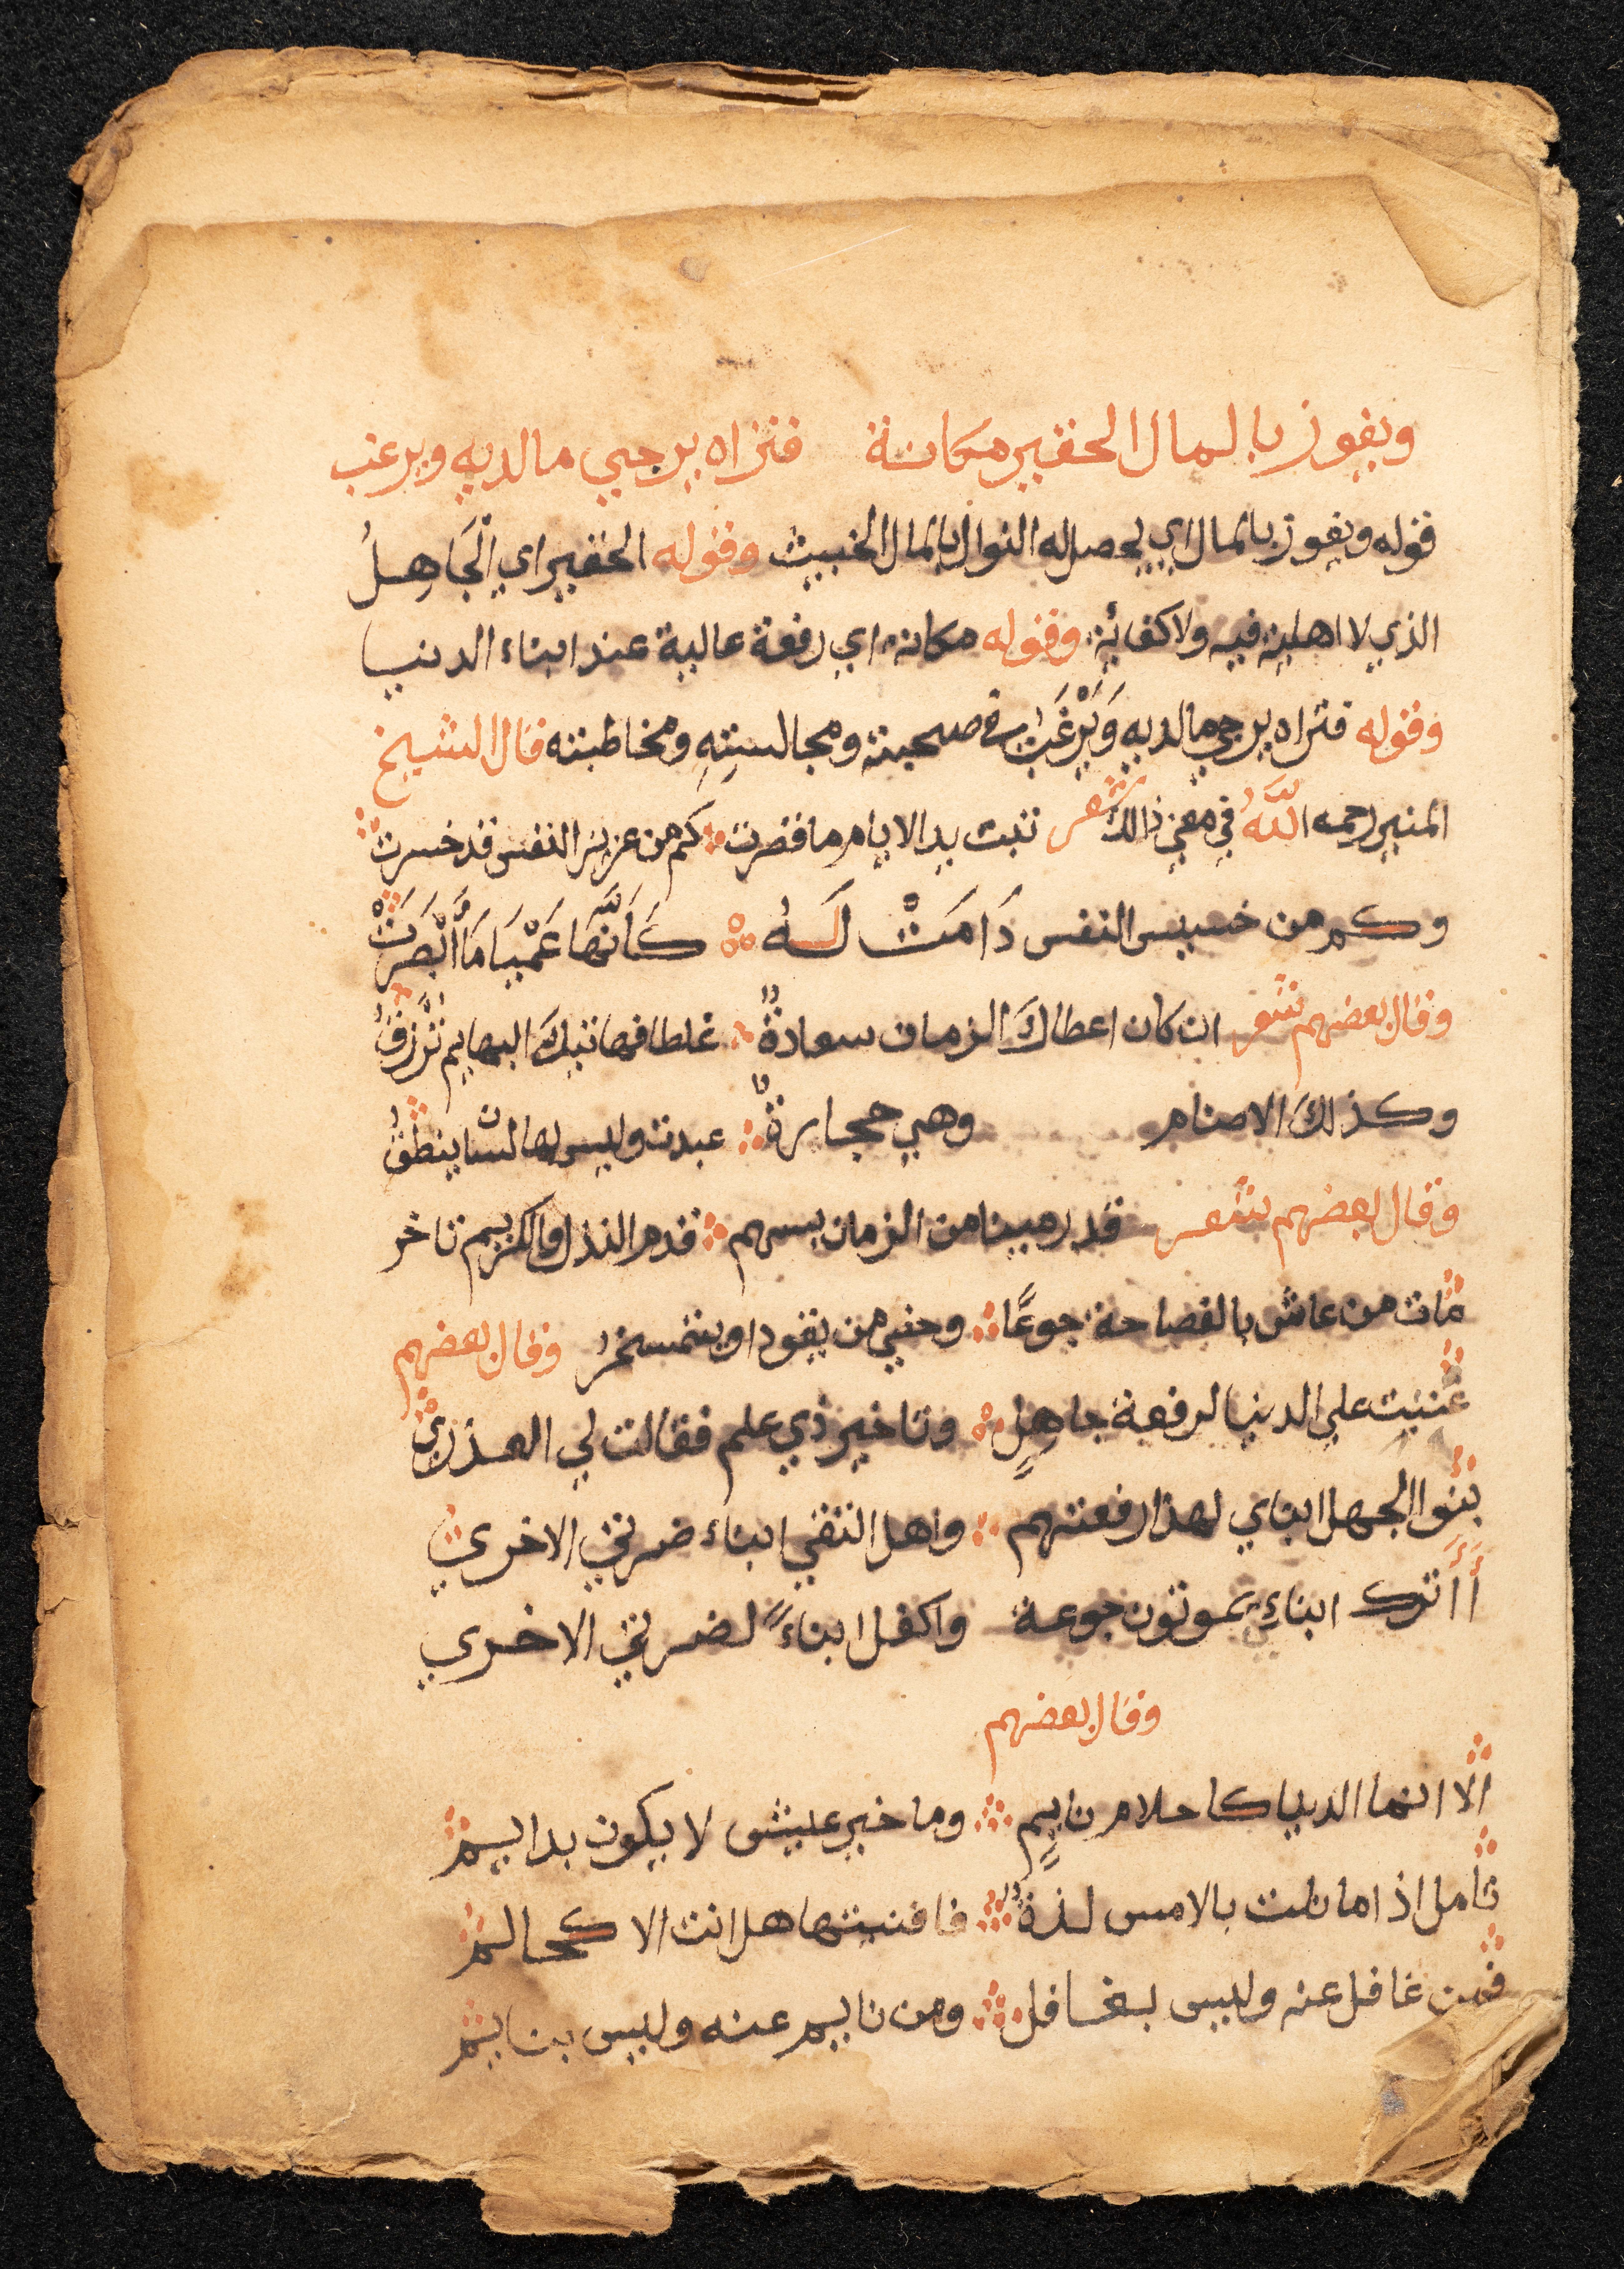 ويفوز بالمال الحقير مكانة فتراه يرجي ما لديه ويرغب
قوله ويفوز بالمال اي يحصل له النوال بالمال الخبيث وقوله الحقير اي الْجَاهِلُ
الذي لا اهلية فيه ولا كفائة وقوله مكانة اي رفعة عالية عند ابناء الدنيا
وقوله فتراه يرجي ما لديه وَيَرْغَبُ في صحبته ومجالستِهِ ومخاطبته قال الشيخ
المنير رحمه اللَّهُ في معني ذالك شعر تبت يد الايام ما قصرت كم من عزيز النفس قد خسرت
وكم من خسيس النفس دَامَتْ لَهُ كَأَنَّهَا عَمْيَا مَا أَبْصَرَتْ
وقال بعضهم شعر ان كان اعطاكَ الزمان سعادةً غلطا فها تيك البهايم تُرْزَقُ
وكذلك الاصنام وهي حجارةٌ عبدت وليس لها لسان ينطقُ
وقال بعضهم شعر قد رمينا من الزمان بسهم قدم النذل والكريم تاخر
مات من عاش بالفصاحة جوعًا وحني من يقود او يتمسخرُ وقال بعضهم
عتبت علي الدنيا لرفعة جاهِلٍ وتاخير ذي علم فقالت لي العذري
بنوا الجهل ابناي لهذا رفعتهم واهل التقي ابناء ضرتي الاخري
أأترك ابناءِ يموتون جوعة واكفل ابناءً لضرتي الاخري
وقال بعضهم
الا انما الدنيا كاحلام نايمٍ وما خير عيش لا يكون بدايم
تامل اذا ما نلت بالامس لذةً فافنيتها هل انت الا كحالم
فمن غافل عنه وليس بغافل ومن نايم عنه وليس بنايم